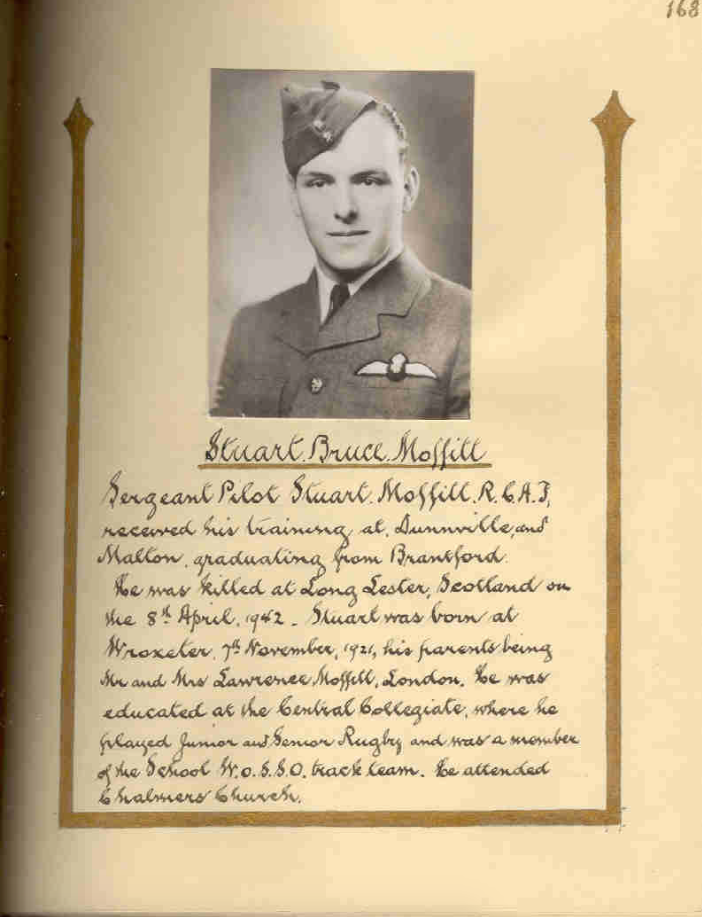 168
Stuart Bruce Moffitt
Sergeant Pilot Stuart Moffitt, R.C.A.F,
received his training at Dunnville, and
Malton, graduating from Brantford.
He was killed at Long Lester, Scotland on
the 8th April, 1942. Stuart was born at
Wroxeter, 7th November, 1921, his parents being
Mr and Mrs Lawrence Moffitt, London. He was
educated at the Central Collegiate, where he
played Junior and Senior Rugby and was a member
of the School W.O.S.S.O. track team. He attended
Chalmers Church.